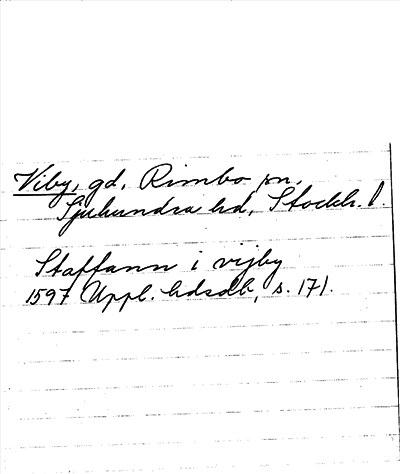 Viby, gd, Rimbo sn,
Sjuhundra hd, Stockh. l.
Staffann i vijby
1597 Uppl. hdsdb, s. 171.